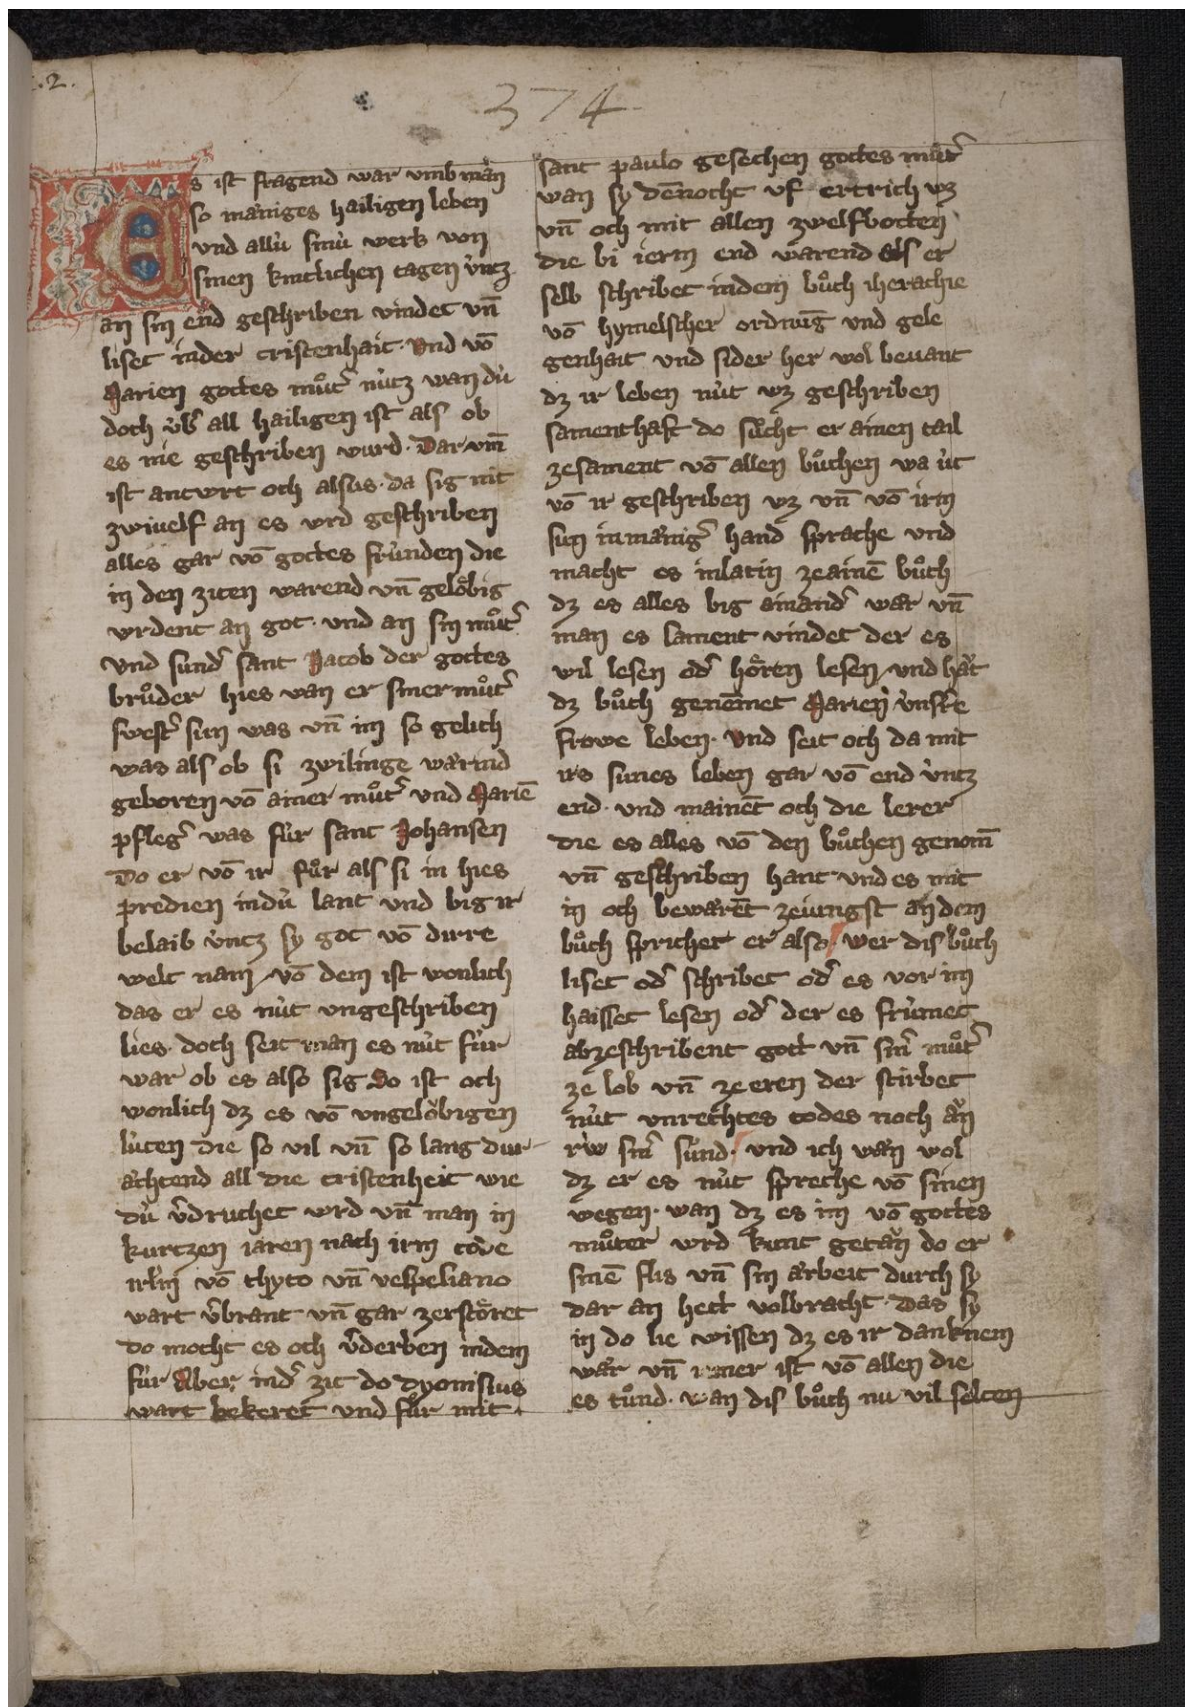 .2.
374
Es ist fragend war vmb man
so māniges hailigen leben
vnd allú sinú werk von
sinen kintlichen tagen v́ntz
an sin end geschriben vindet vn̄
liset in der cristenhait. Vnd vō
Marien gottes můt᷑ nútz wan dú
doch v́b᷑ all hailigen ist als ob
es nie geschriben wurd. Dar vm̄
ist antwrt och alsus. da sig nit
zwiuelf an es wrd geschriben
alles gar vō gottes frúnden die
in den ziten warend vn̄ gelo̊big
wrdent an got. vnd an sin můt᷑
Vnd sund᷑ sant Jacob der gottes
brůder hies wan er siner můt᷑
swest᷑ sun was vn̄ im so gelich
was als ob si zwilinge wārind
geboren vō ainer můt᷑ vnd Mariē
pfleg᷑ was fúr sant Johansen
Do er vō ir fůr als si in hies
predien in dú lant vnd big ir
belaib v́ntz sy got vō dirre
welt nam vō dem ist wonlich
das er es nút vngeschriben
lies. doch seit man es nút fúr
war ob es also sig Do ist och
wonlich dz es vō vngelo̊bigen
lúten die so vil vn̄ so lang dur
āchtend all die cristenheit wie
dú v᷑druchet wrd vn̄ man in
kurtzen iaren nach irm tode
irl᷑m vō thyto vn̄ vespesiano
wart v᷑brant vn̄ gar zersto̊ret
do mocht es och v᷑derben in dem
fúr Aber in d᷑ zit do dyonisius
wart bekeret vnd fůr mit
sant paulo gesechen gottes můt᷑
wan sy dēnocht vf ertrich wz
vn̄ och mit allen zwelfbotten
die bi ierm end warend als er
selb schribet in dem bůch iherachie
vō hymelscher ordnūg vnd gele
genhait vnd sider her wol bevant
dz ir leben nút wz geschriben
samenthaft do sůcht er ainen tail
zesament vō allen bůchen wa út
vō ir geschriben wz vn̄ vō irm
sun in mānig᷑ hand sprache vnd
macht es in latin ze ainē bůch
dz es alles big ainand᷑ war vn̄
man es sament vindet der es
wil lesen od᷑ ho̊ren lesen vnd hāt
dz bůch genēmet Marien vnsr᷑e
frowe leben. Vnd seit och da mit
irs sunes leben gar vō end v́ntz
end. vnd mainēt och die lerer
die es alles vō den bůchen genom̄
vn̄ geschriben hant vnd es mit
in och bewārēt ze iungst an dem
bůch sprichet er also wer dis bůch
liset od᷑ schribet od᷑ es vor im
haisset lesen od᷑ der es frúmet
abzeschribent gott vn̄ sin᷑ můt᷑
ze lob vn̄ ze eren der stirbet
nút vnrechtes todes noch ān
rúw sin᷑ súnd. vnd ich wān wol
dz er es nút spreche vō sinen
wegen. wan dz es im vō gottes
můter wrd kunt getān do er
sinē flis vn̄ sin arbeit durch sy
dar an hett volbracht. Das sy
in do lie wissen dz es ir danknem
wār vn̄ iemer ist vō allen die
es tůnd. wan dis bůch nu vil selten